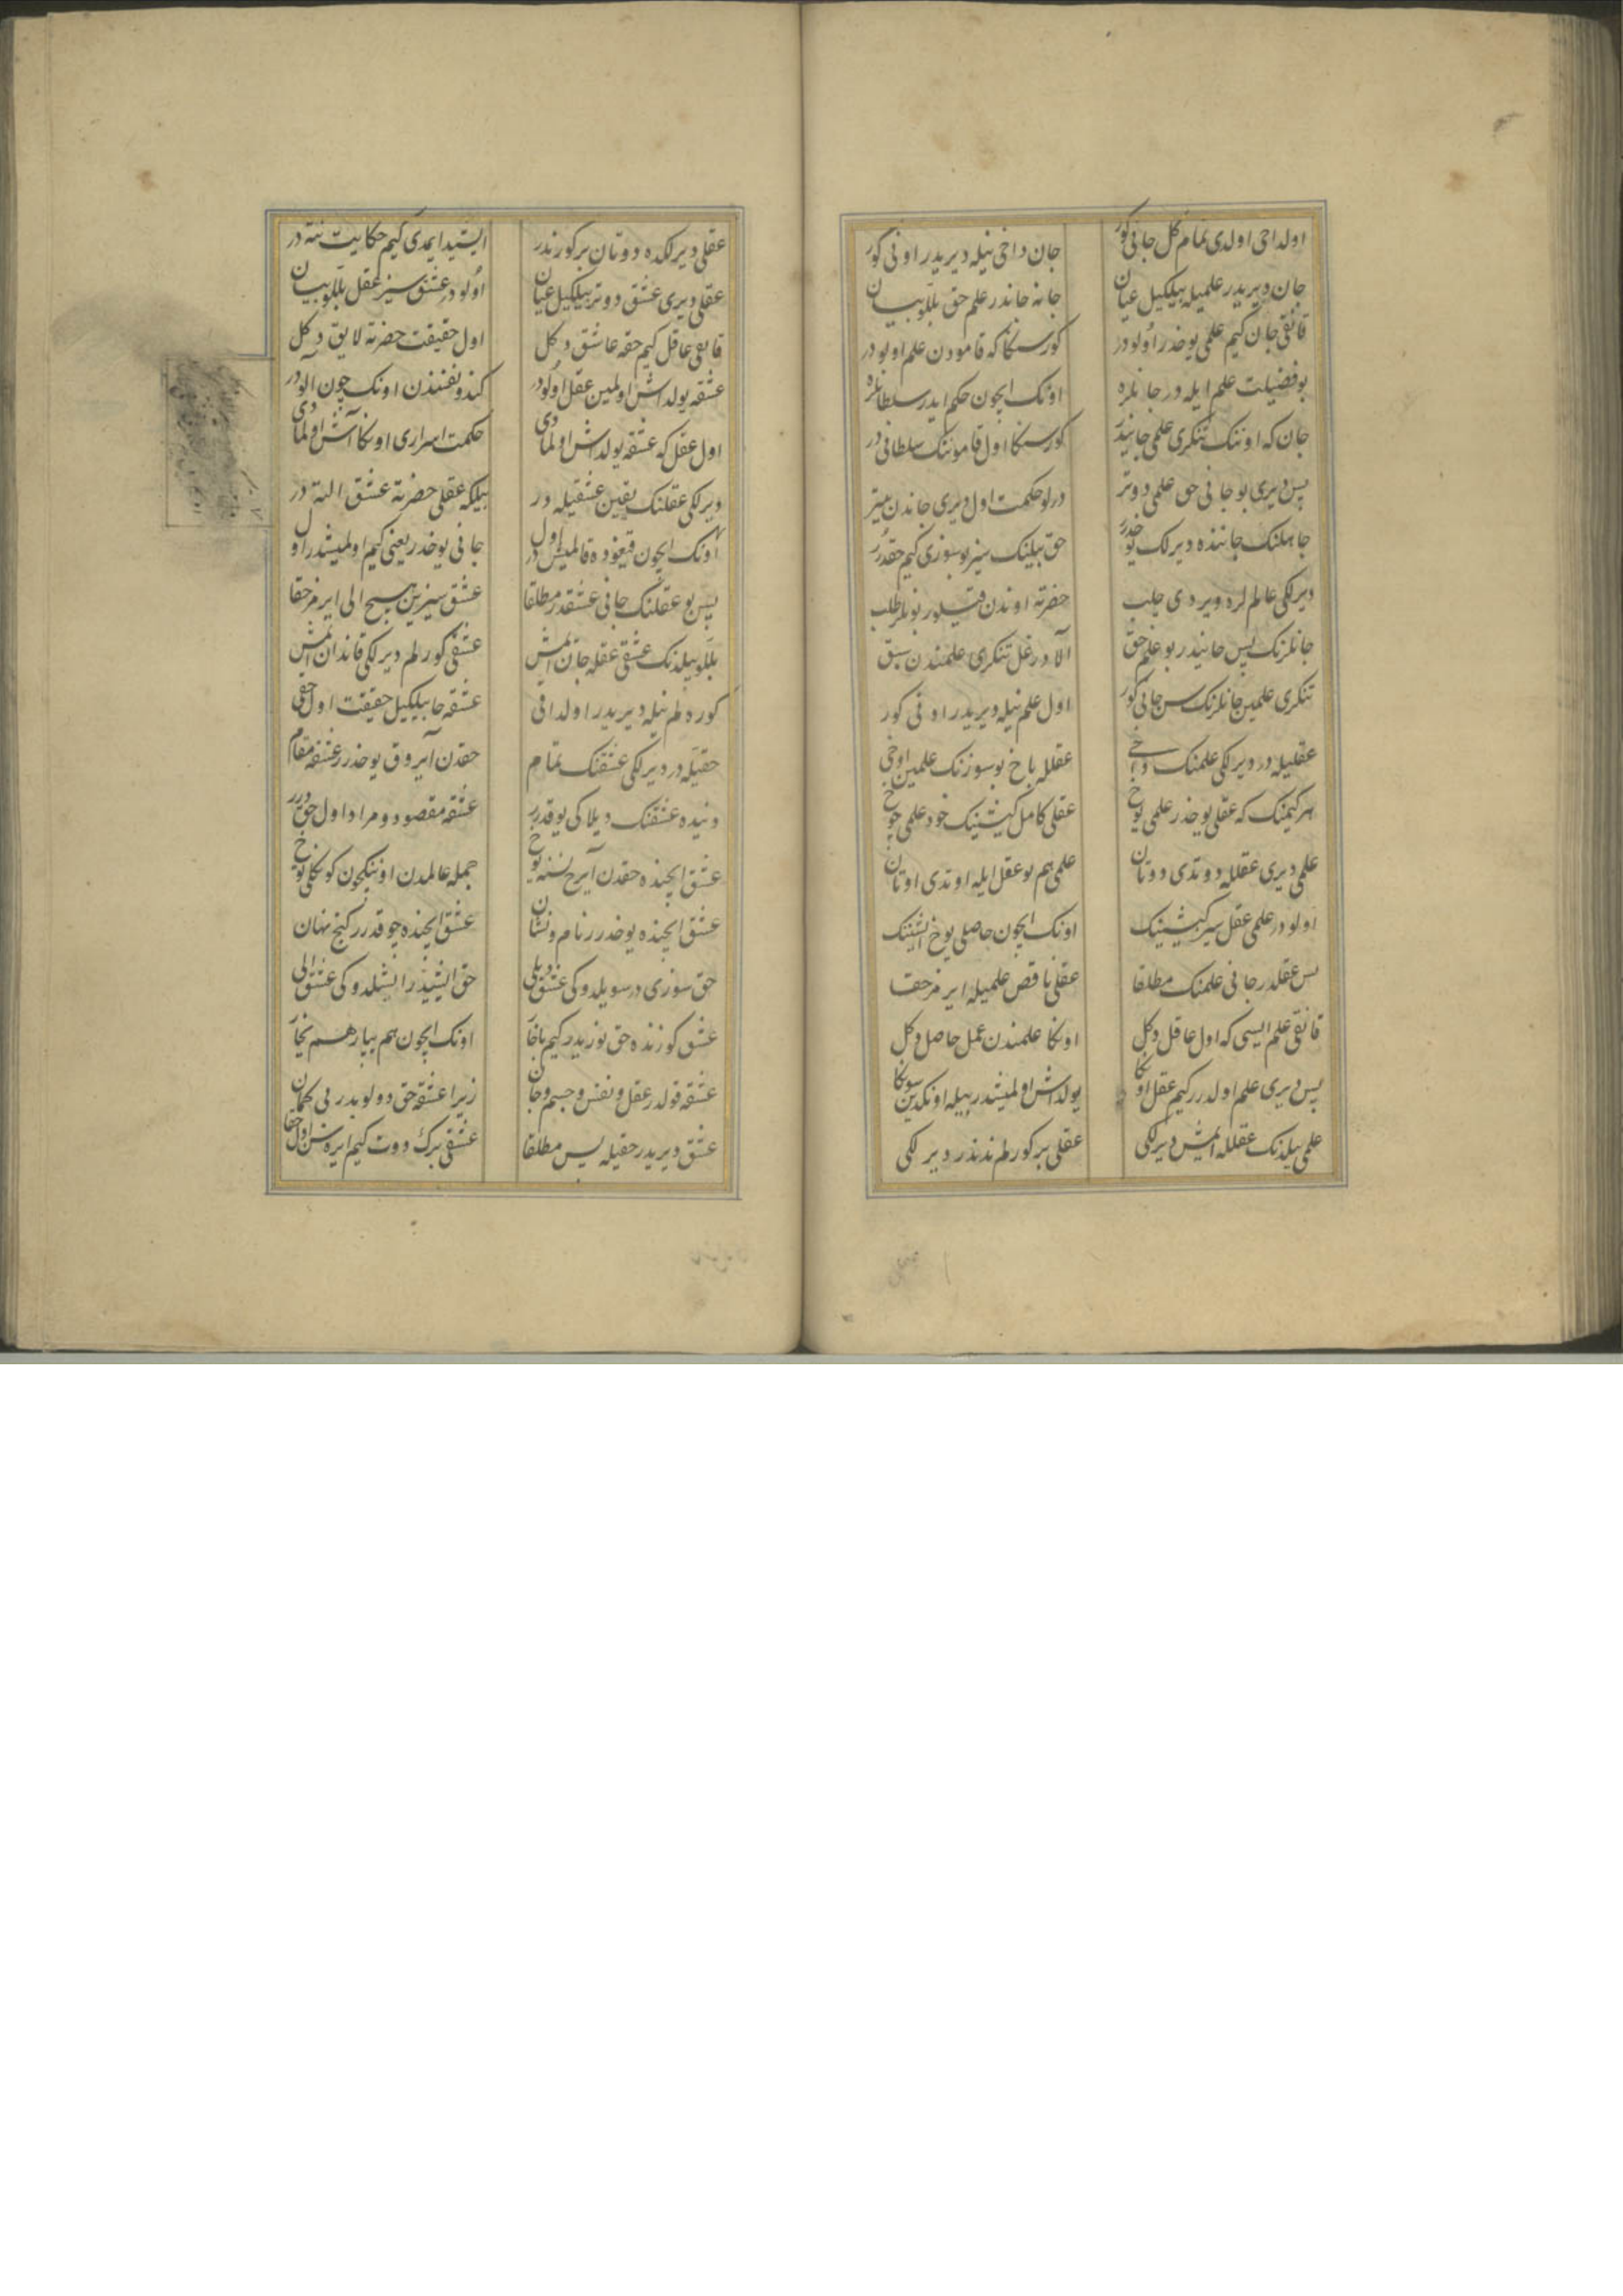 اولداخی اولدی تمام کل جانی کور جان داخی نیله دیریدر اونی کور
جان دیریدر علمیله بیلکیل عیان جانه جاندر علم حق بللو بیان
قانقی جان کیم علمی یوخدر اولودر کورسکا که قامودن علم اولودر
بو فضیلت علم ایله در جانلره اونک ایچون حکم ایدر سلطانلره
جان که اوننک تنکری علمی جانیدر کورسکا اول قاموننک سلطانی در
پس دیری بو جانی حق علمی دوتر درلو حکمت اول دیری جاندن بیتر
جاهلنک جاننده دیرلک یوخدرر حق بیلنک سیز بو سوزی کیم حقدرر
دیرلکی عالملره ویردی جلب حضرته اوندن قیلور بونلر طلب
جانلرنک پس جانیدر بو علم حق آلا درغل تنکری علمندن سبق
تنکری علمین جانلرنک سن جانی کور اول علم نیله دیریدر اونی کور
عقلیله در دیرلکی علمنک داخی عقلله باخ بو سوزنک علمین اوخی
هر کیمنک که عقلی یوخدر علمی یوخ عقلی کامل کیشینک خود علمی چوخ
علمی دیری عقلله دوتدی دوتان علمی هم بو عقل ایله اوتدی اوتان
اولودر علمی عقل سیز کیشینک اونک ایچون حاصلی یوخ ایشنک
بس عقلدر جانی علمنک مطلقا عقلی ناقص علمیله ایرمز حقا
قانقی علم ایسی که اول عاقل دکل اونکا علمندن عمل حاصل دکل
پس دیری علم اولدرر کیم عقل اونکا یولداش اولمیشدر بیله اونکدین سونکا
علمی بیلدنک عقلله ایمیش دیرلکی عقلی بر کورلم ندندر دیرلکی
عقلی دیرلکده دوتان بر کورندر ایشید ایمدی کیم حکایت نته در
عقلی دیری عشق دوتر بیلکیل عیان اولودر عشق سیز عقل بللو بیان
قانقی عاقل کیم حقه عاشق دکل اول حقیقت حضرته لایق دکل
عشقه یولداش اولمین عقل اولودر کندو نفسندن اونک چون آلودر
اول عقل که عشقه یولداش اولمادی حکمت اسراری اونکا آش اولمادی
دیرلکی عقلنک یقین عشقیله در بیلکه عقلی حضرته عشق التدر
اونک ایچون قیغوده قالمیش در اول جانی یوخدر یعنی کیم اولمیشدر اول
پس بو عقلنک جانی عشقدر مطلقا عشق سیزین هیچ الی ایرمز حقا
بللو بیلدنک عشقی عقله جان ایمش عشقی کورلم دیرلکی قاندان ایمش
کوره لم نیله دیریدر اولدانی عشقه جا بیلکیل حقیقت اول حقی
حقیله در دیرلکی عشقنک تمام حقدن آیروق یوخدرر عشقه مقام
دنیده عشقنک دیلاکی یوقدرر عشقه مقصود و مراد اول حق درر
عشق ایچنده حقدن آیرخ نسنه یوخ جمله عالمدن اونیکچون کونکلی توخ
عشق ایچنده یوخدرر نام و نشان عشق ایچنده چوقدرر کنج نهان
حق سوزی در سویلدوکی عشق دیلی حق ایشیدر ایشلدوکی عشق الی
عشق کوزنده حق نوریدر کیم باخار اونک ایچون هم یپار هم یخار
عشقه قولدر عقل و نفس و جسم و جان زیرا عشقه حق دولوبدر بی کمان
عشق دیریدر حقیله پس مطلقا عشقی برک دوت کیم ایره سن اول حقا